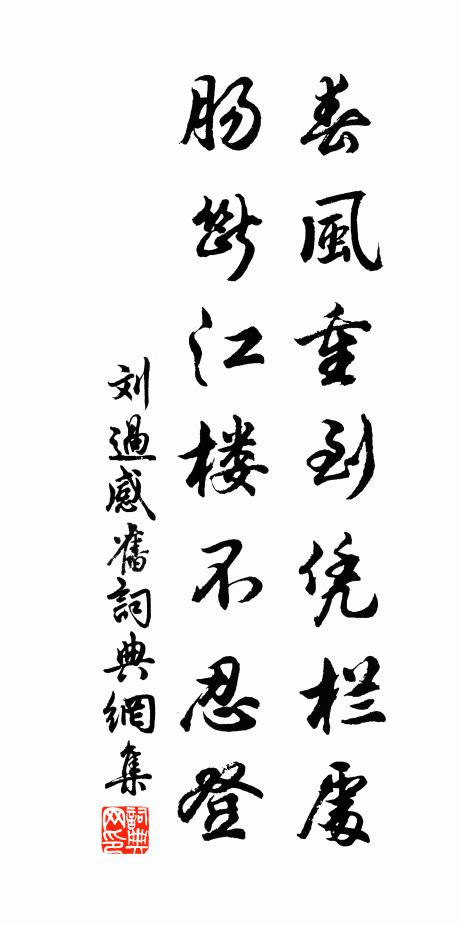 春風重到凭栏處
肠斷江楼不忍登
刘過感舊詞典網集
詞典网印